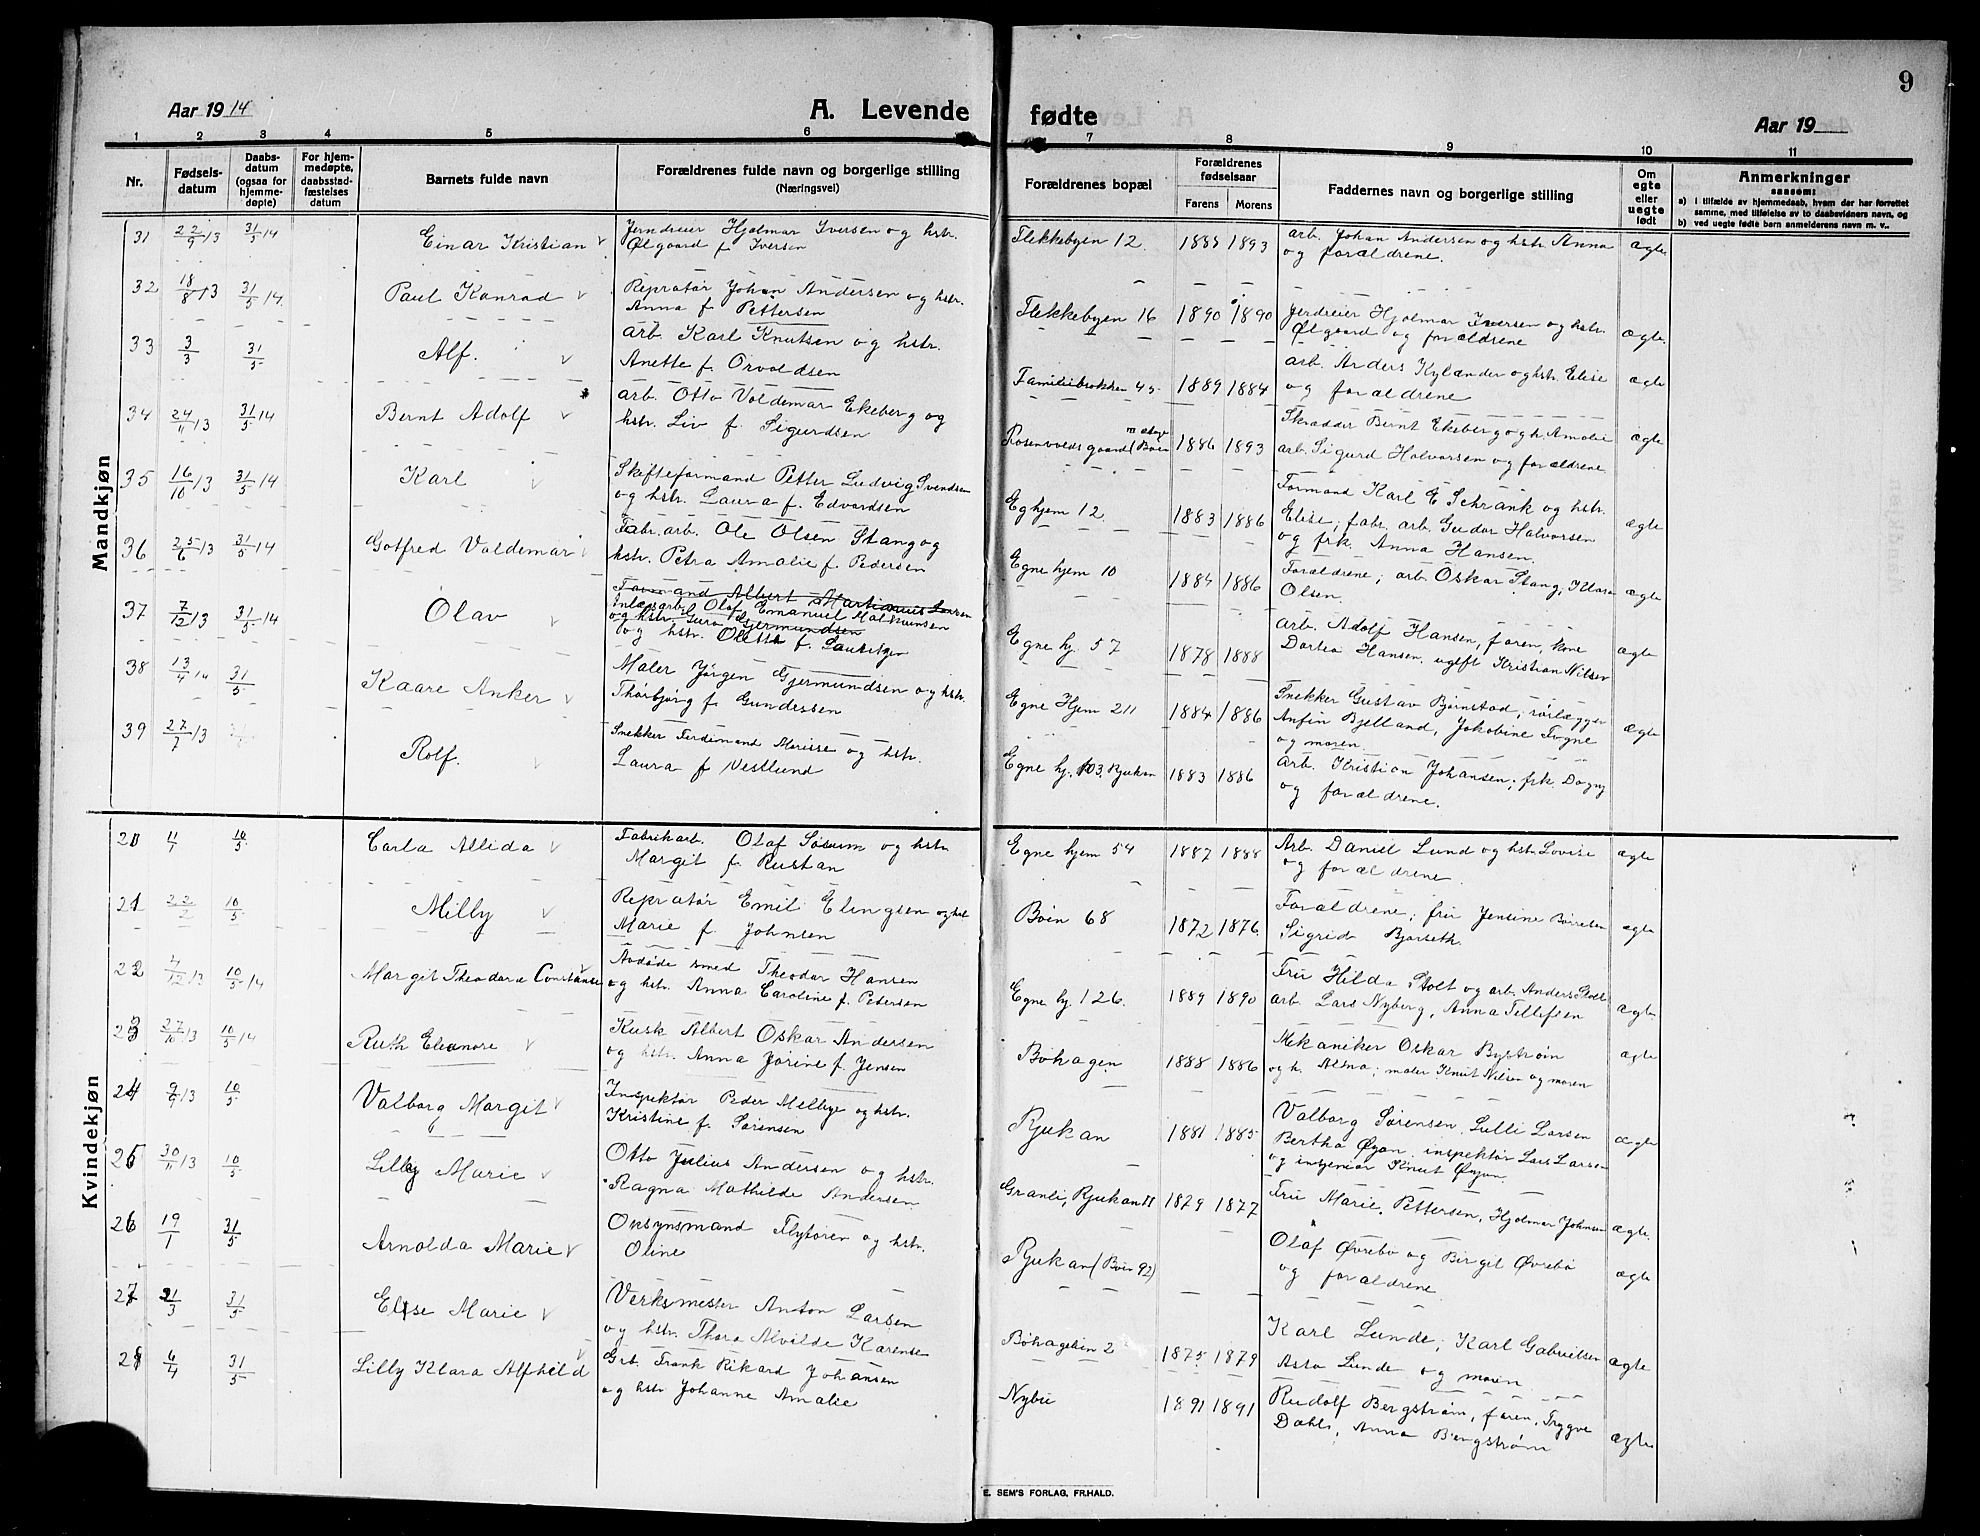 9
Aar 1914
A. Levende fødte
Aar 19
1 2 3 4 5 6 7 8 9 10 11
Nr.
Fødsels-
datum
Daabs-
datum
(ogsaa for
hjemme-
døpte)
For hjem-
medøpte,
daabsstad-
fæstelses
datum
Barnets fulde navn
Forældrenes fulde navn og borgerlige stilling
(Næringsvei)
Forældrenes bopæl
Forældrenes
fødselsaar
Farens Morens
Faddernes navn og borgerlige stilling
Om
egte
eller
uegte
født
Anmerkninger
sansom:
a) i tilfælde av hjemmedaab, hvem der har forrettet
samme, med tilføielse av to daabsvidners navn, og
b) ved uegte fødte børn anmelderens navn m. v..
Mandkjøn
31 22/9 13 31/5 14 Einar Kristian
Jerndreier Hjalmar Iversen og hstr.
Ølgaard f Iversen
Flekkebyen 12. 1889 1893
arb. Johan Andersen og hstr. Anna
og forældrene.
ægte
32 18/8 13 31/5 14. Paul Konrad
Repratør Johan Andersen og hstr.
Anna f. Pettersen
Flekkebyen 16 1890 1890
Jerdreier Hjalmar Iversen og hstr.
Ølgaard og forældrene
ægte.
33 3/3 31/5 Alf.
arb. Karl Knutsen og hstr.
Anette f. Orvoldsen
Familiebrakken 45 1889 1884
arb. Anders Kylander og hstr. Elise
og forældrene
ægte
34 24/11 13 31/5 14 Bernt Adolf
arb. Otto Voldemar Ekeberg og
hstr. Liv f. Sigurdsen
Rosenvoldsgaard (Bøen 1886 1893
Skrædder Bernt Ekeberg og h. Amalie
arb. Sigurd Halvorsen og forældrene
ægte
35 16/10 13 31/5 14 Karl
Skifteformand Petter Ludvig Svendsen
og hstr. Laura f. Edvardsen
Eghjem 12 1883 1886
Formand Karl E Schrank og hstr.
Elise; fabr. arb. Gudar Halvorsen
og frk. Anna Hansen.
ægte
36 25/6 13 31/5 14 Gotfred Valdemar
Fabr. arb. Ole Olsen Stang og
hstr. Petra Amalie f. Pedersen
Egne hjem 10 1884 1886
Forældrene; arb. Oskar Stang, Klara
Olsen.
ægte
37 7/12 13 31/5 14 Olav
Formand Albert Martinius Larsen
Inlægsarb. Olaf Emanuel Malmunsen
og hstr. Guro Gjermundsen
og hstr. Olette f. Lauritzen
Egne hj. 57 1878 1888
arb. Adolf Hansen, faren, kone
Dortea Hansen, ugift Kristian Nilsen
ægte
38 13/4 14 31/5 Kaare Anker
Maler Jørgen Gjermundsen og hstr.
Thorbjørg f. Gundersen
Egne Hjem 211 1884 1886
Snekker Gustav Bjørnstad; rørlægger
Anfin Bjelland, Jakobine Fogne
og moren.
ægte
39 27/7 13 Rolf.
Snekker Ferdinand Morisse og hstr.
Laura f Vestlund
Egne hj. 103, Rjukan 1883 1886
Arb. Kristian Johansen; frk. Dagny
og forældrene.
Kvindekjøn
20 11/1 10/5 Carla Allida
Fabrikarb. Olaf Søsum og hstr.
Margit f. Rustan
Egne hjem 54 1887 1888
Arb. Daniel Lund og hstr. Lovise
og forældrene
ægte
21 22/2 10/5 Milly
Repratør Emil Elingsen og hst
Marie f. Johnsen
Bøen 68 1872 1876.
Forældrene; fru Jensine Børresen
Sigrid Bjørseth.
ægte
22 4/12 13 10/5 14 Margit Theodora Constanse
Avdøde smed Theodor Hansen
og hstr. Anna Caroline f. Pedersen
Egne hj. 126. 1889 1890
Fru Hilda Stolt og arb. Anders Stolt
arb. Lars Nyberg, Anna Tellefsen
ægte.
23 27/10 13 10/5 14 Ruth Eleonore
Kusk Albert Oskar Andersen
og hstr. Anna Jørine f. Jensen
Bøhagen 1888 1886
Mekaniker Oskar Bystrøm
og h. Alma; maler Knut Nilsen og moren
ægte
24 9/9 13 10/5 Valborg Margit
Inspektør Peder Melbye og hstr.
Kristine f. Sørensen
Rjukan 1881 1885
Valborg Sørensen, Lulli Larsen
Bertha Øyan, inspektør Lars Larsen
og ingeniør Knut Øyan.
ægte
25 30/11 13 10/5 Lilly Marie
Otto Julius Andersen og hstr.
Ragna Mathilde Andersen
Granli, Rjukan 1879 1877
Fru Marie Pettersen, Hjalmar Johnsen
ægte.
26 19/1 31/5 Arnolda Marie
Opsynsmand Flytøren og hstr.
Oline
Rjukan (Bøen 92)
Olaf Øvrebø og Birgit Øvrebø
og forældrene
ægte
27 21/3 31/5 Else Marie
Verksmester Anton Larsen
og hstr. Thora Alvilde Karense
Bøhagelien 2 1875 1879
Karl Lunde, Karl Gabrielsen
Asta Lunde og moren
ægte
28 4/4 31/5 Lilly Klara Alfhild
Grb. Frank Rikard Johansen
og hstr Johanne Amalie
Nybu 1891 1891
Rudolf Bergstrøm, faren, Trygve
Dahl, Anna Bergstrøm
ægte
E. SEM'S FORLAG, FR.HALD.